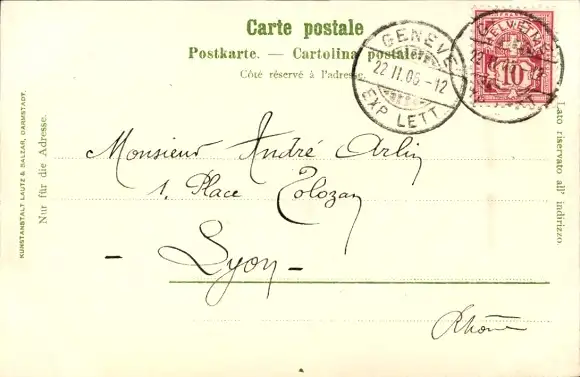 Carte postale
Postkarte. — Cartolina postale.
Côté réservé à l'adresse.
GENÈVE
22 II.06-12
EXP. LETT.
HELVETIA
10
KUNSTANSTALT LAUTZ & BALZAR, DARMSTADT.
Nur für die Adresse.
Lato riservato all' indirizzo.
Monsieur André Arlin
1. Place Tolozan
- Lyon -
Rhône